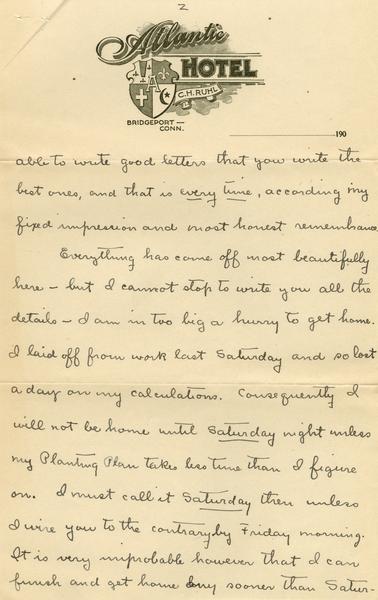 2
Atlantic
HOTEL
C.H. RUHL
BRIDGEPORT—
CONN.
190
able to write good letters that you write the
best ones, and that is every time, according my
fixed impression and most honest remembrance.
Everything has come off most beautifully
here – but I cannot stop to write you all the
details – I am in too big a hurry to get home.
I laid off from work last Saturday and so lost
a day on my calculations. Consequently I
will not be home until Saturday night unless
my Planting Plan takes less time than I figure
on. I must call it Saturday then unless
I wire you to the contrary by Friday morning.
It is very improbable however that I can
finish and get home any sooner than Satur-